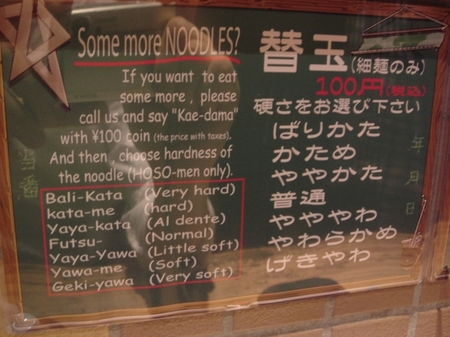 Some more NOODLES?
If you want to eat
some more , please
call us and say "Kae-dama"
with ¥100 coin (the price with taxes).
And then , choose hardness of
the noodle (HOSO-men only).
Bali-Kata (Very hard)
kata-me (hard)
Yaya-kata (Al dente)
Futsu- (Normal)
Yaya-Yawa (Little soft)
Yawa-me (Soft)
Geki-yawa (Very soft)
替玉(細麺のみ)
100円(税込)
硬さをお選び下さい
ばりかた
かため
ややかた
普通
やややわ
やわらかめ
げきやわ
年月日